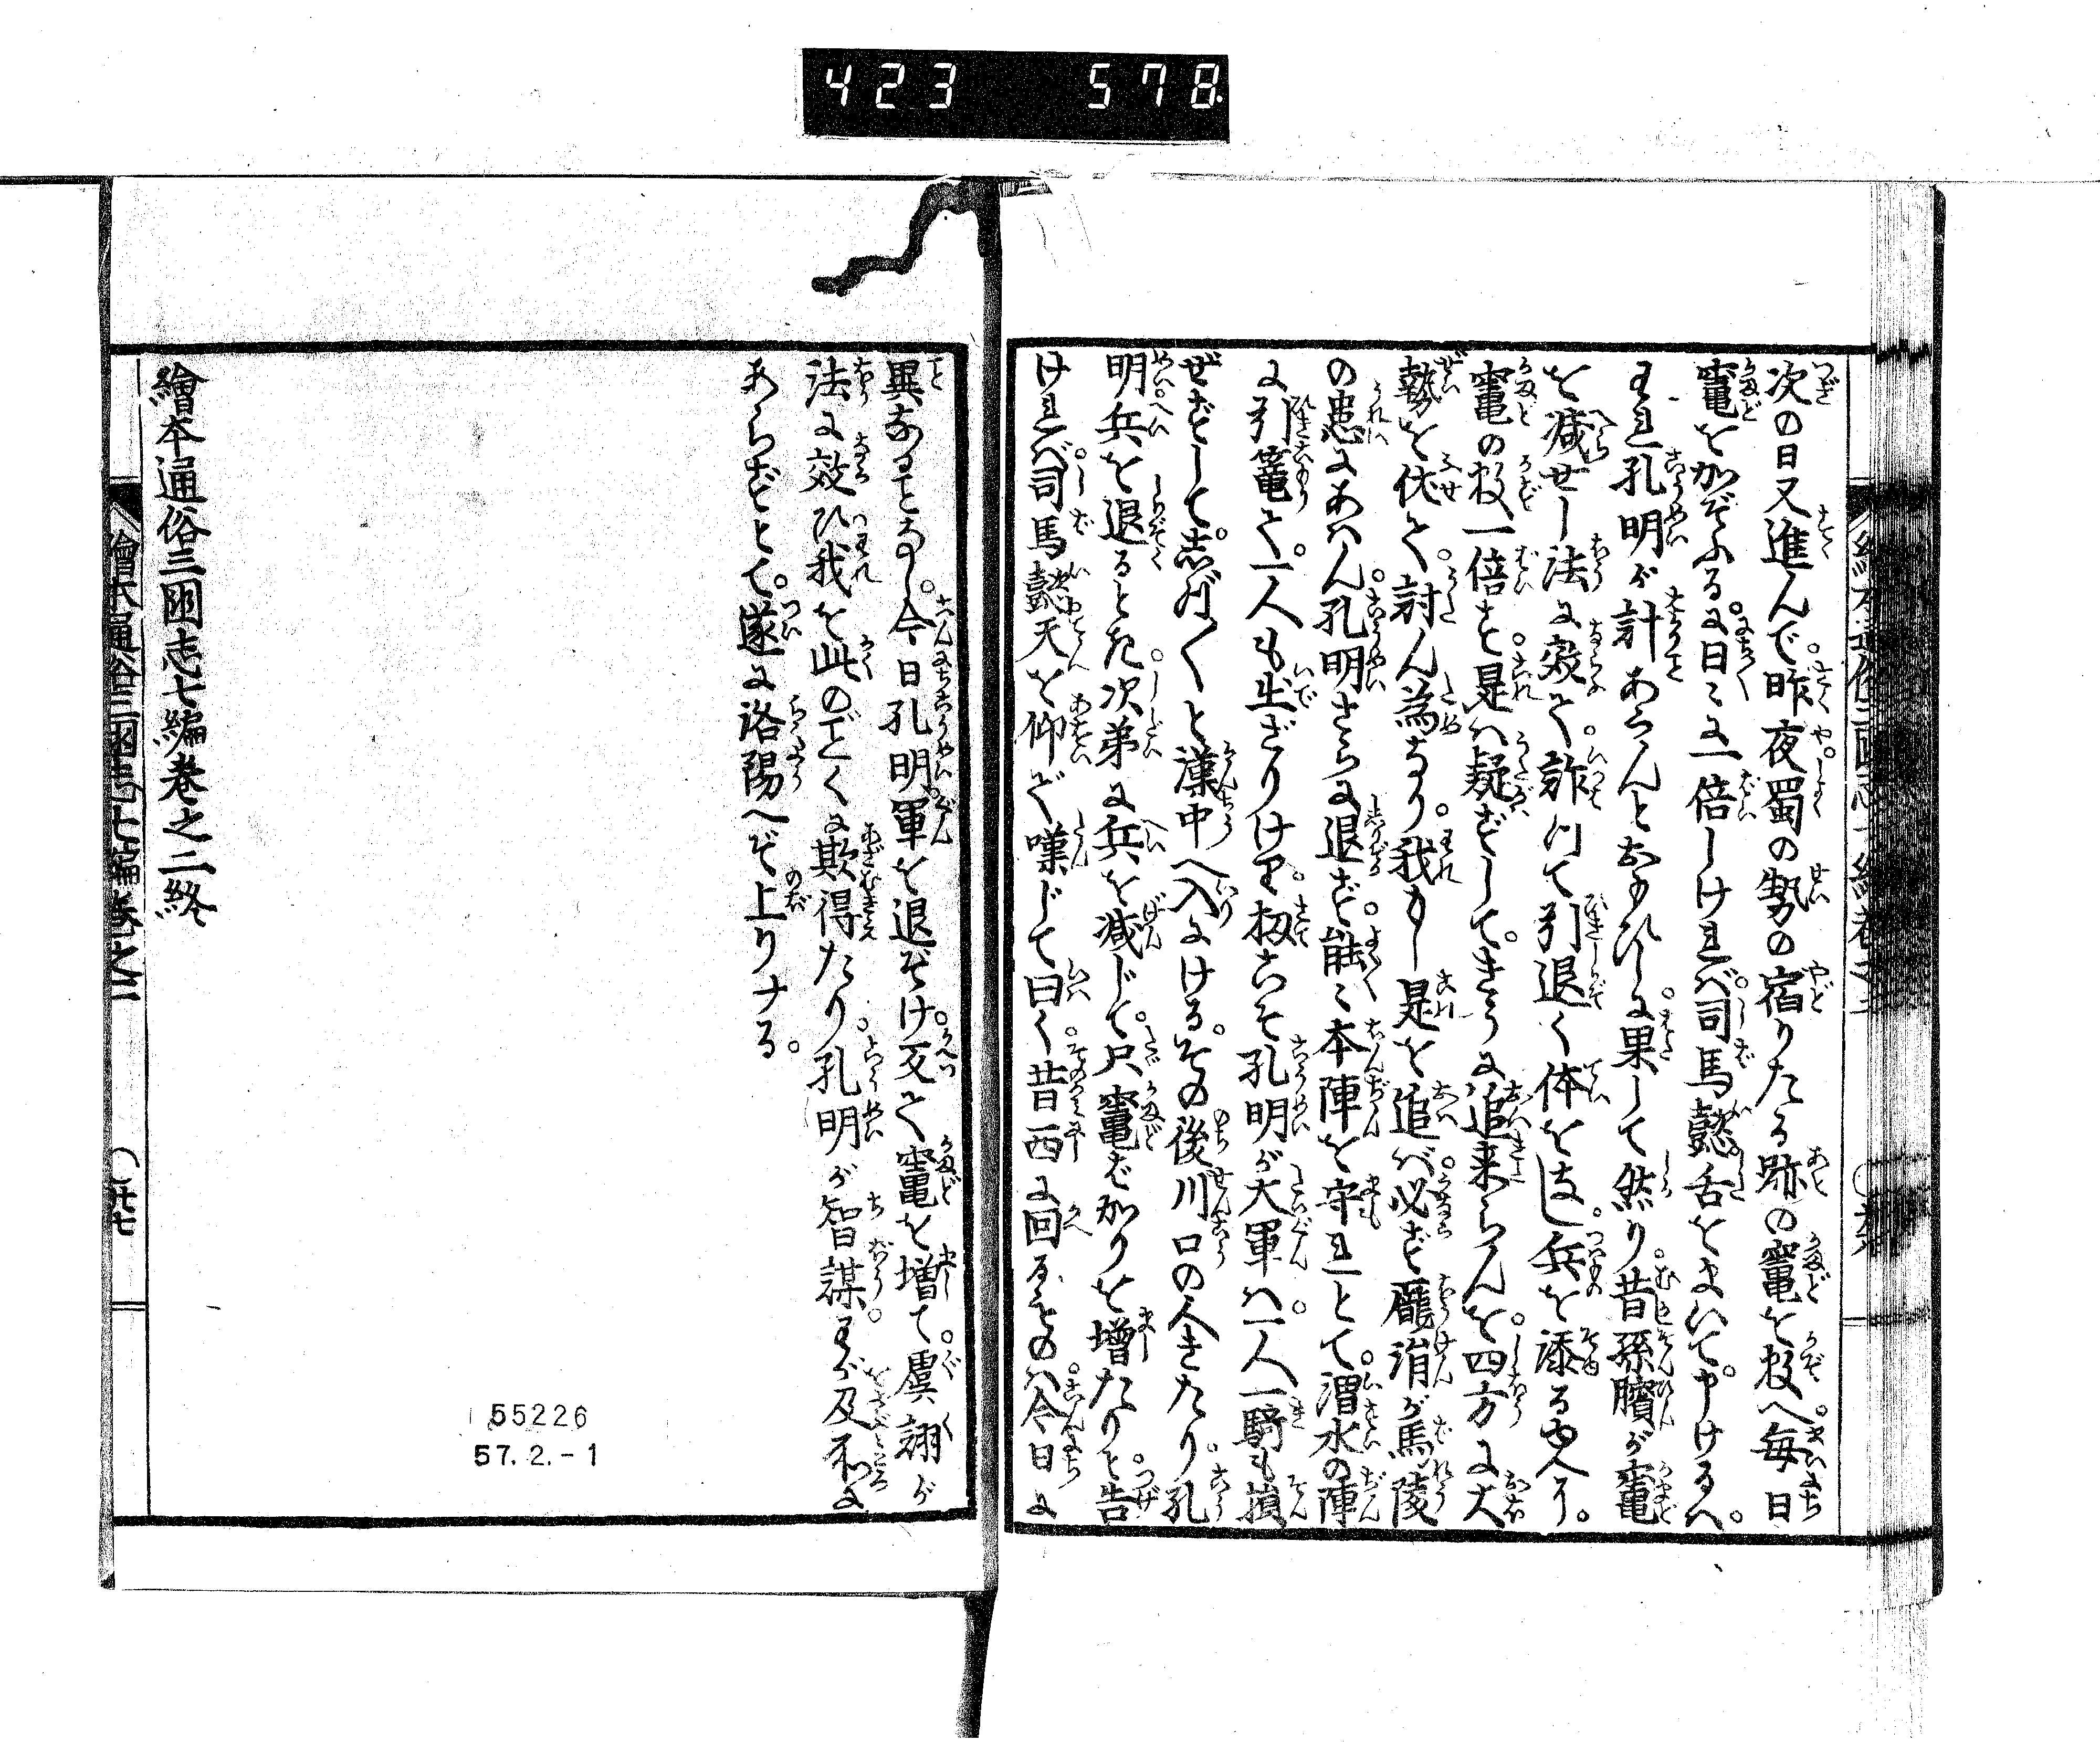 423 578
次の日又進んで。昨夜。蜀の勢の宿りたる跡の竈を数へ。毎日
竈をかぞふるに。日々に一倍しければ。司馬懿。舌をまいて。申けるハ。
それ孔明が計あらんとおもひしに。果して然り。昔孫臏が竈
を減せし法に效て。詐つて引退く体をなし。兵を添る内人り。
竈の数一倍す。是ハ疑ずして。きうに追来らんを。四方に大
勢を伏て。討ん為なり。我もし是を追バ。必ず龐涓が馬陵
の患にあハん。孔明さらに退ず。能々本陣を守れとて。渭水の陣
に引篭て。一人も出ざりけり。扨こそ孔明が大軍ハ。一人一騎も損
ぜずして。志づ〱と漢中へ入にける。その後川口の人きたり。孔
明。兵を退るとき。次第に兵を減じて。只竈ばかりを増たりと。告
ければ。司馬懿天を仰ぎ嘆じて曰く。昔西に回るものハ。今日に
異なることなし。今日孔明。軍を退ぞけ。反て竈を増て。虞詡が
法に效ひ我を此のごとくに欺得たり。孔明が智謀。わが及ぶ所に
あらずとて。遂に洛陽へぞ上りける。
繪本通俗三國志七編巻之二終
繪本通俗三國志七編巻之二
〇廿七
55226
57.2.-1